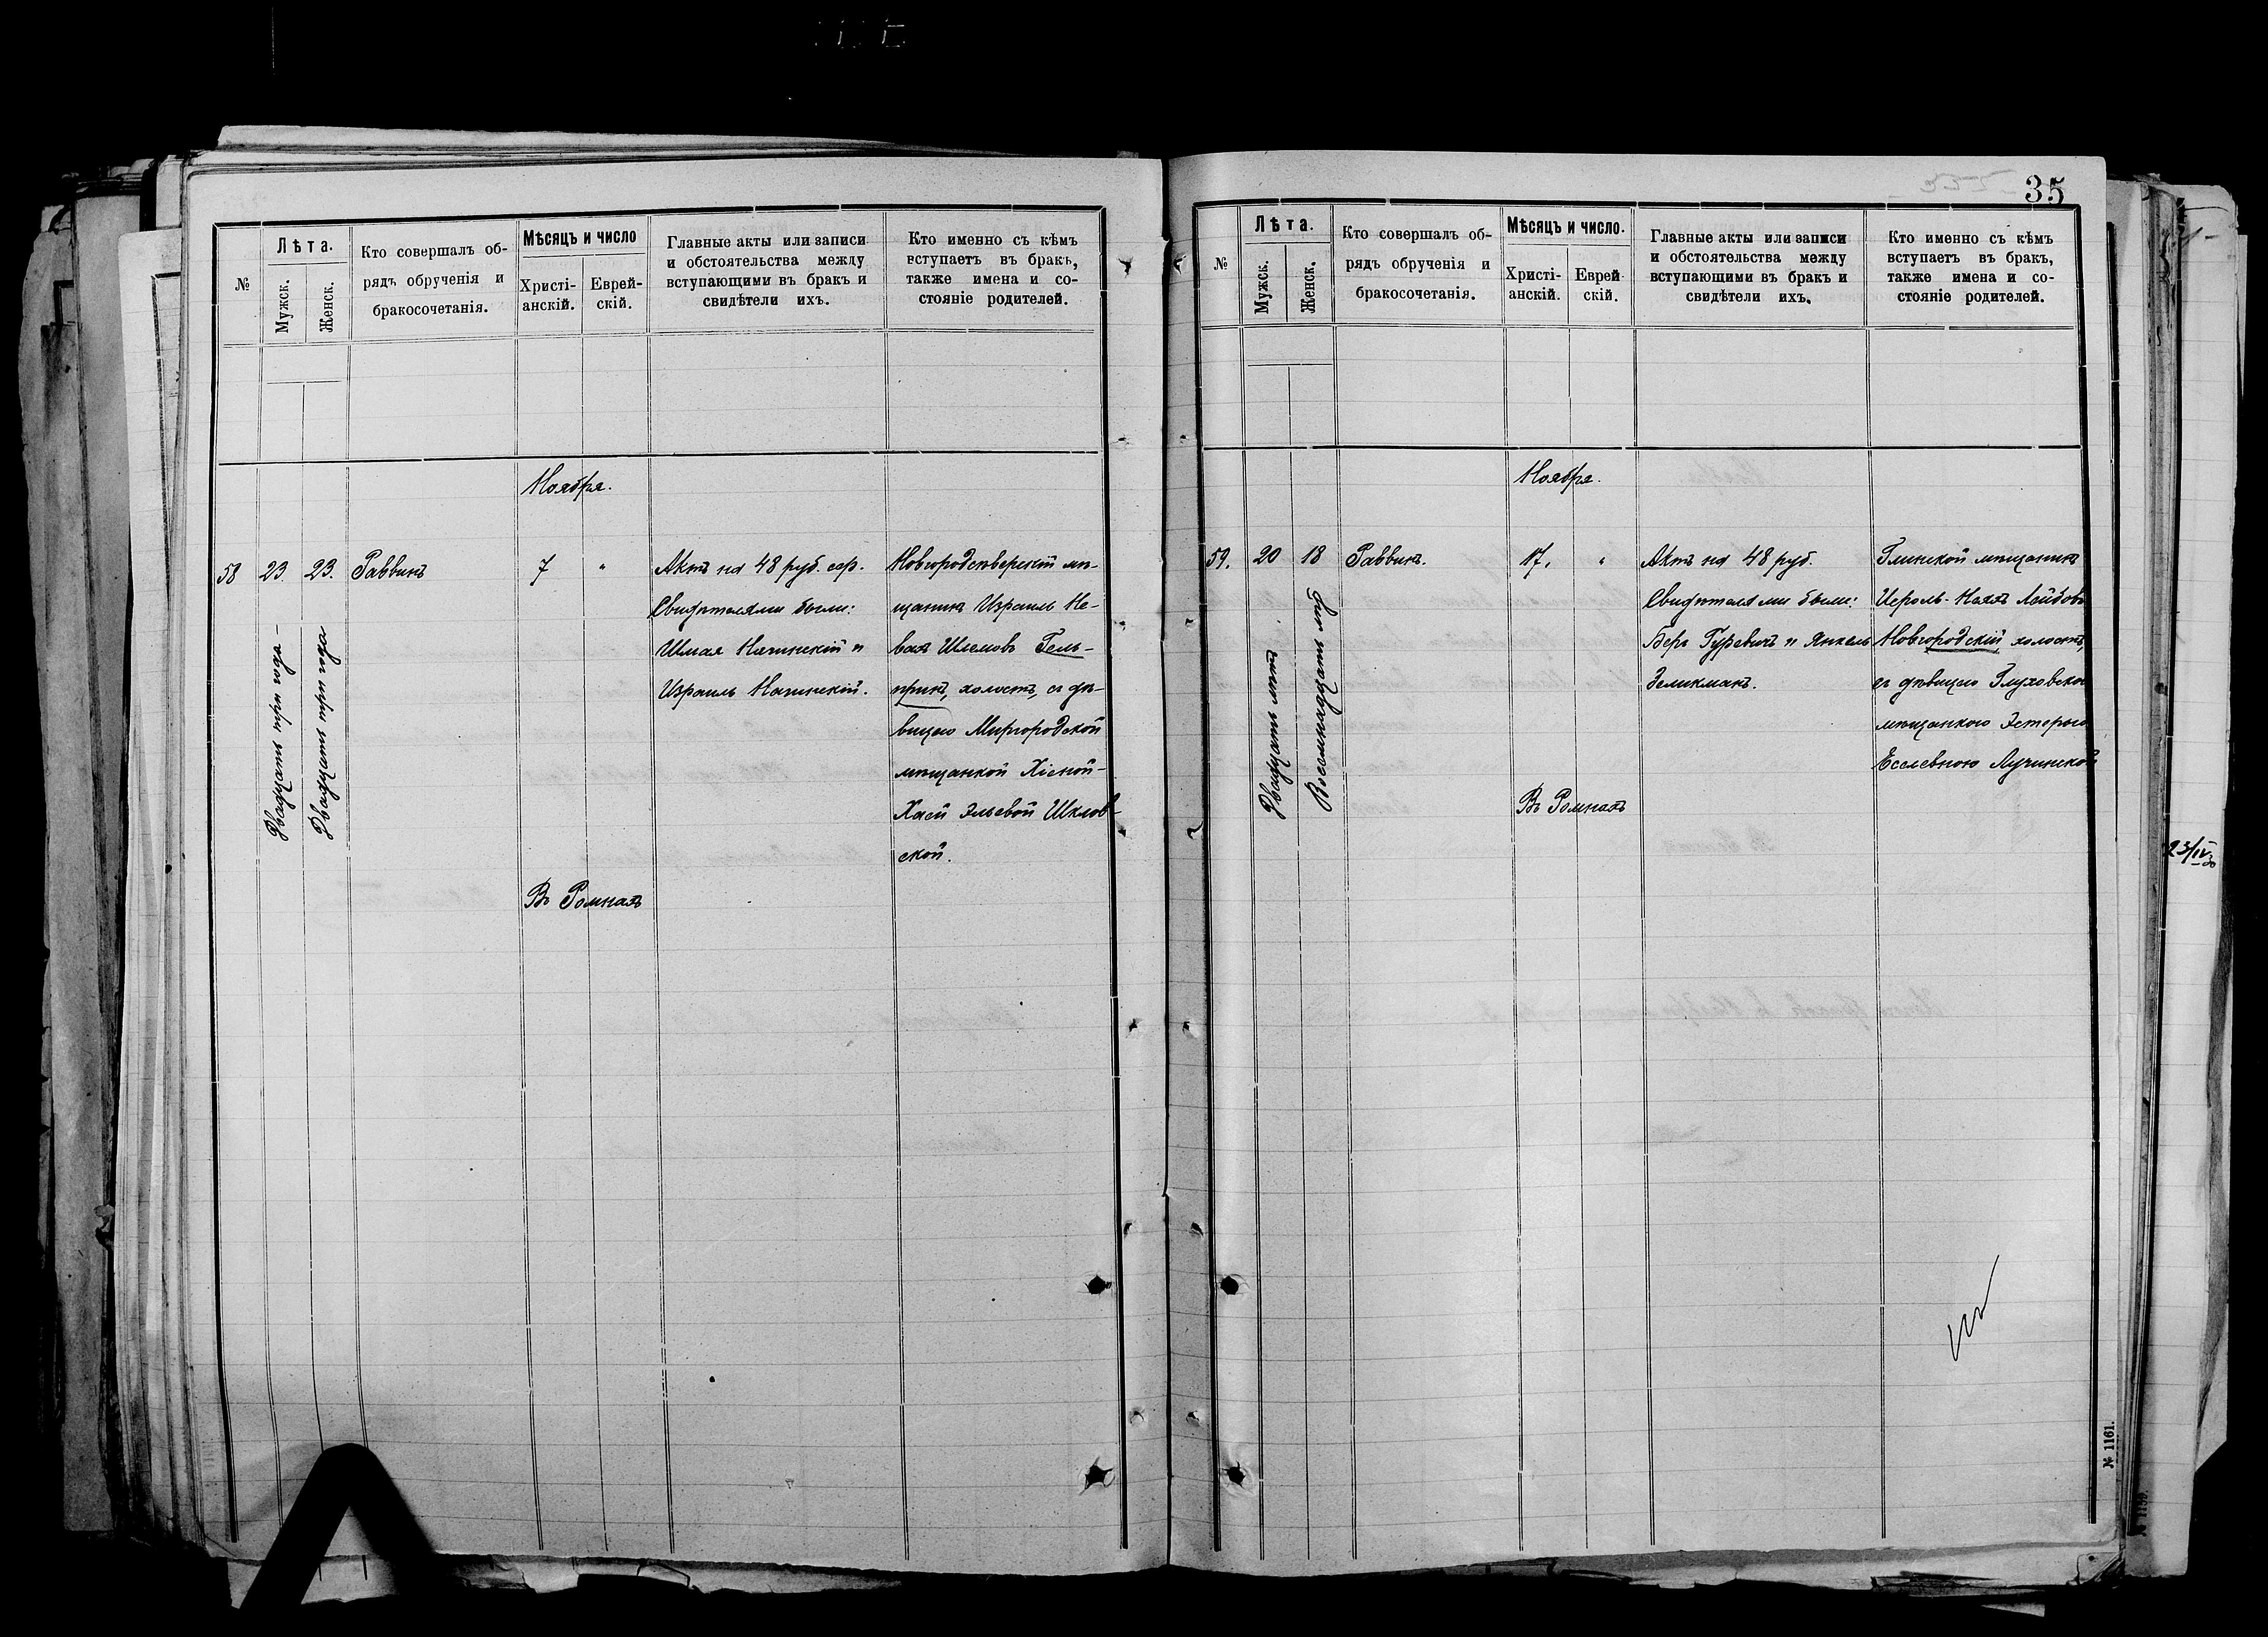 №
Лѣта.
Мужск.
Женск.
Кто совершалъ об-
рядъ обрученія и
бракосочетанія.
Мѣсяцъ и число
Христі-
анскій.
Еврей-
скій.
Главные акты или записи
и обстоятельства между
вступающими въ бракъ и
свидѣтели ихъ.
Кто именно съ кѣмъ
вступаетъ въ бракъ,
также имена и со-
стояніе родителей.
Ноября.
58
23.
23.
Двадцать три года -
Двадцать три года
Раввинъ
7
"
Актъ на 48 руб. сер.
Свидѣтелями были:
Шмая Начинскій и
Израиль Начинскій.
Новгородсѣверскій мѣ-
щанинъ Израиль Не-
вахъ Шлемовъ Гель-
принъ, холостъ, съ дѣ-
вицею Миргородской
мѣщанкой Хіеной-
Хаей Эльевой Шклов-
ской.
Въ Ромнахъ
35
№
Лѣта.
Мужск.
Женск.
Кто совершалъ об-
рядъ обрученія и
бракосочетанія.
Мѣсяцъ и число.
Христі-
анскій.
Еврей
скій.
Главные акты или записи
и обстоятельства между
вступающими въ бракъ и
свидѣтели ихъ.
Кто именно съ кѣмъ
вступаетъ въ бракъ,
также имена и со-
стояніе родителей.
Ноября.
59.
20
18
Двадцать лѣтъ
Восемнадцать лѣтъ
Раввинъ.
17.
"
Актъ на 48 руб.
Свидѣтелями были:
Беръ Гуревичъ и Янкель
Зеликманъ.
Глинской мѣщанинъ
Исроль-Ноахъ Лейбовъ
Новгородскій, холостъ,
съ дѣвицею Глуховско
мѣщанкою Эстерью
Еселевною Лучинской
Въ Ромнахъ
№ 1161.
№ 1159.
23/IV